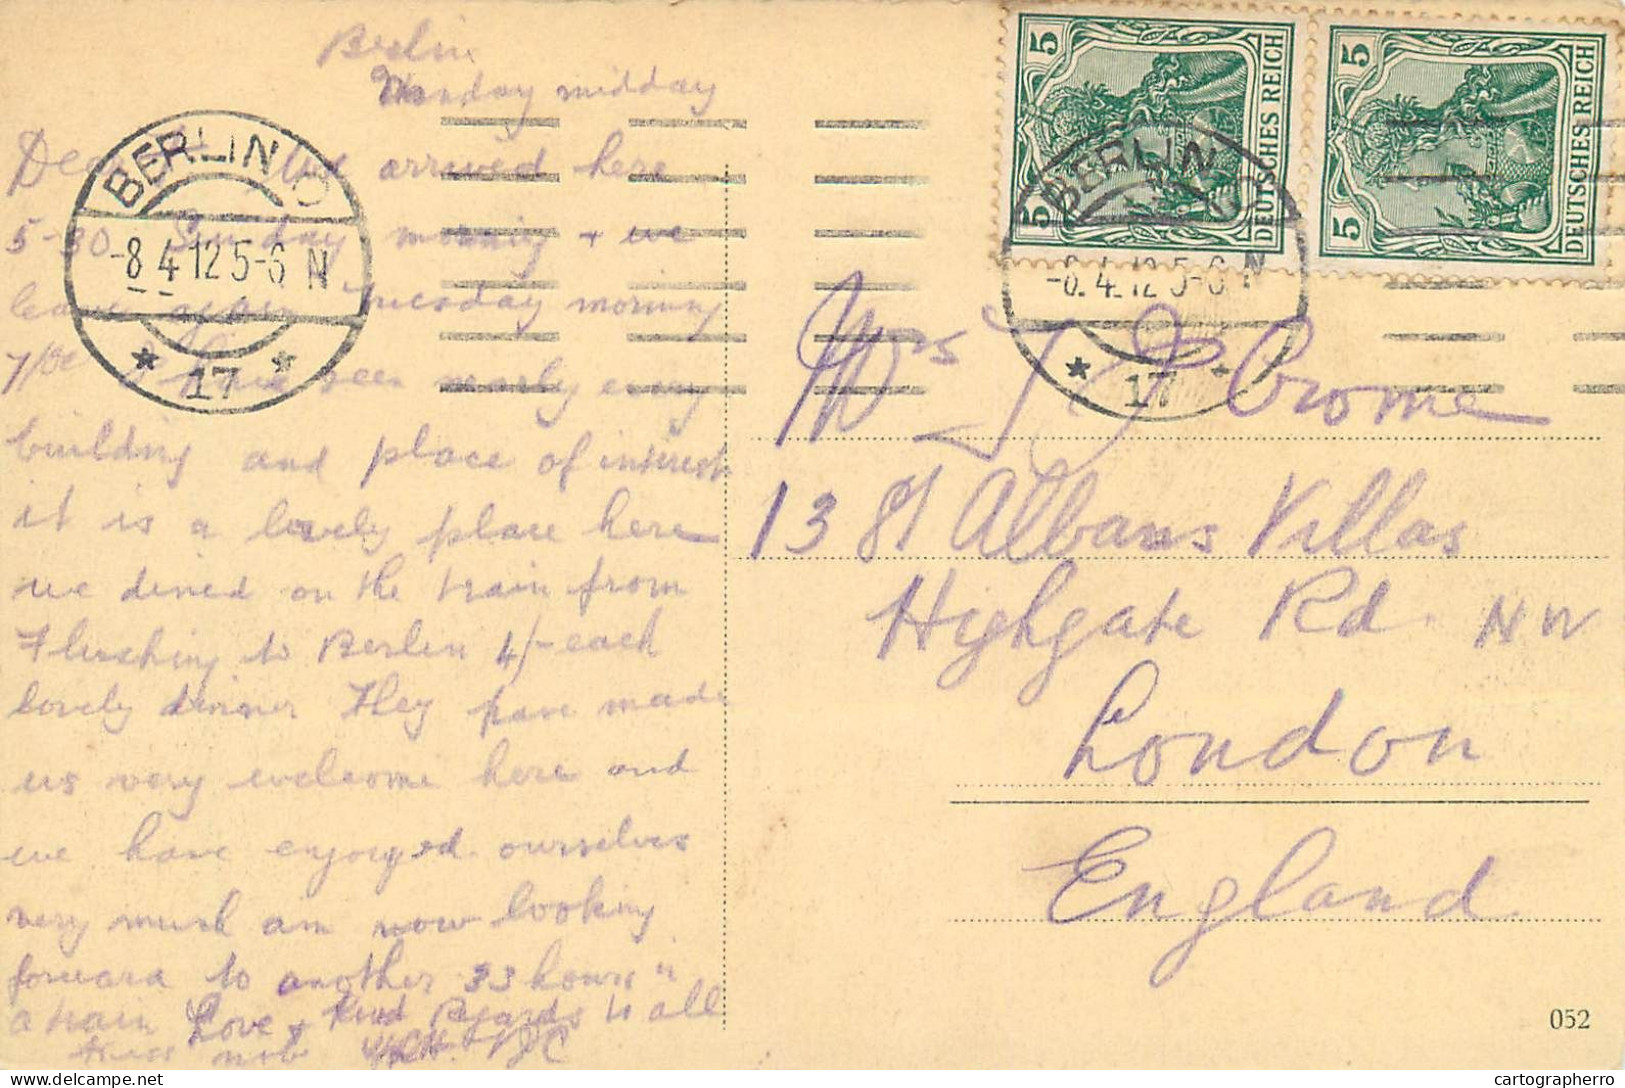 Berlin
Monday midday
Dear We arrived here
5-30 Sunday morning + we
leave again Tuesday morning
have seen nearly every
building and place of interest
it is a lovely place here
we dined on the train from
Flushing to Berlin 4/- each
lovely dinner They have made
us very welcome here and
we have enjoyed ourselves
very much am now looking
forward to another 33 hours in
a train Love & Kind Regards to all
BERLIN O
-8.4.12 5-6 N
* 17 *
5 DEUTSCHES REICH 5
5 DEUTSCHES REICH 5
BERLIN
-8.4.12 5-6 N
* 17 *
Mrs J J Crome
13 St Albans Villas
Highgate Rd. NW
London
England
052
delcampe.net
cartographerro